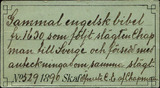 Gammal engelsk bibel
fr. 1630 som följt slägten Chapman
till Sverige och försedd med
anteckningar om samma slägt.
No 529 1890. Skänkt af E. d. Chapman